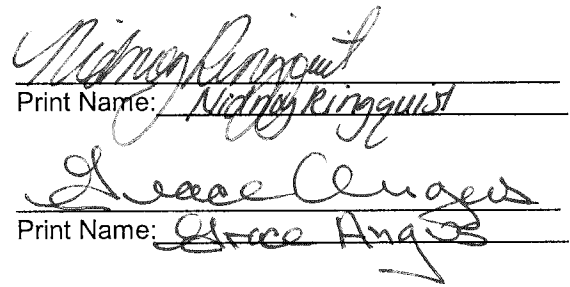 Nidnoy Ringquist
Print Name: Nidnoy Ringquist
Grace Angus
Print Name: Grace Angus